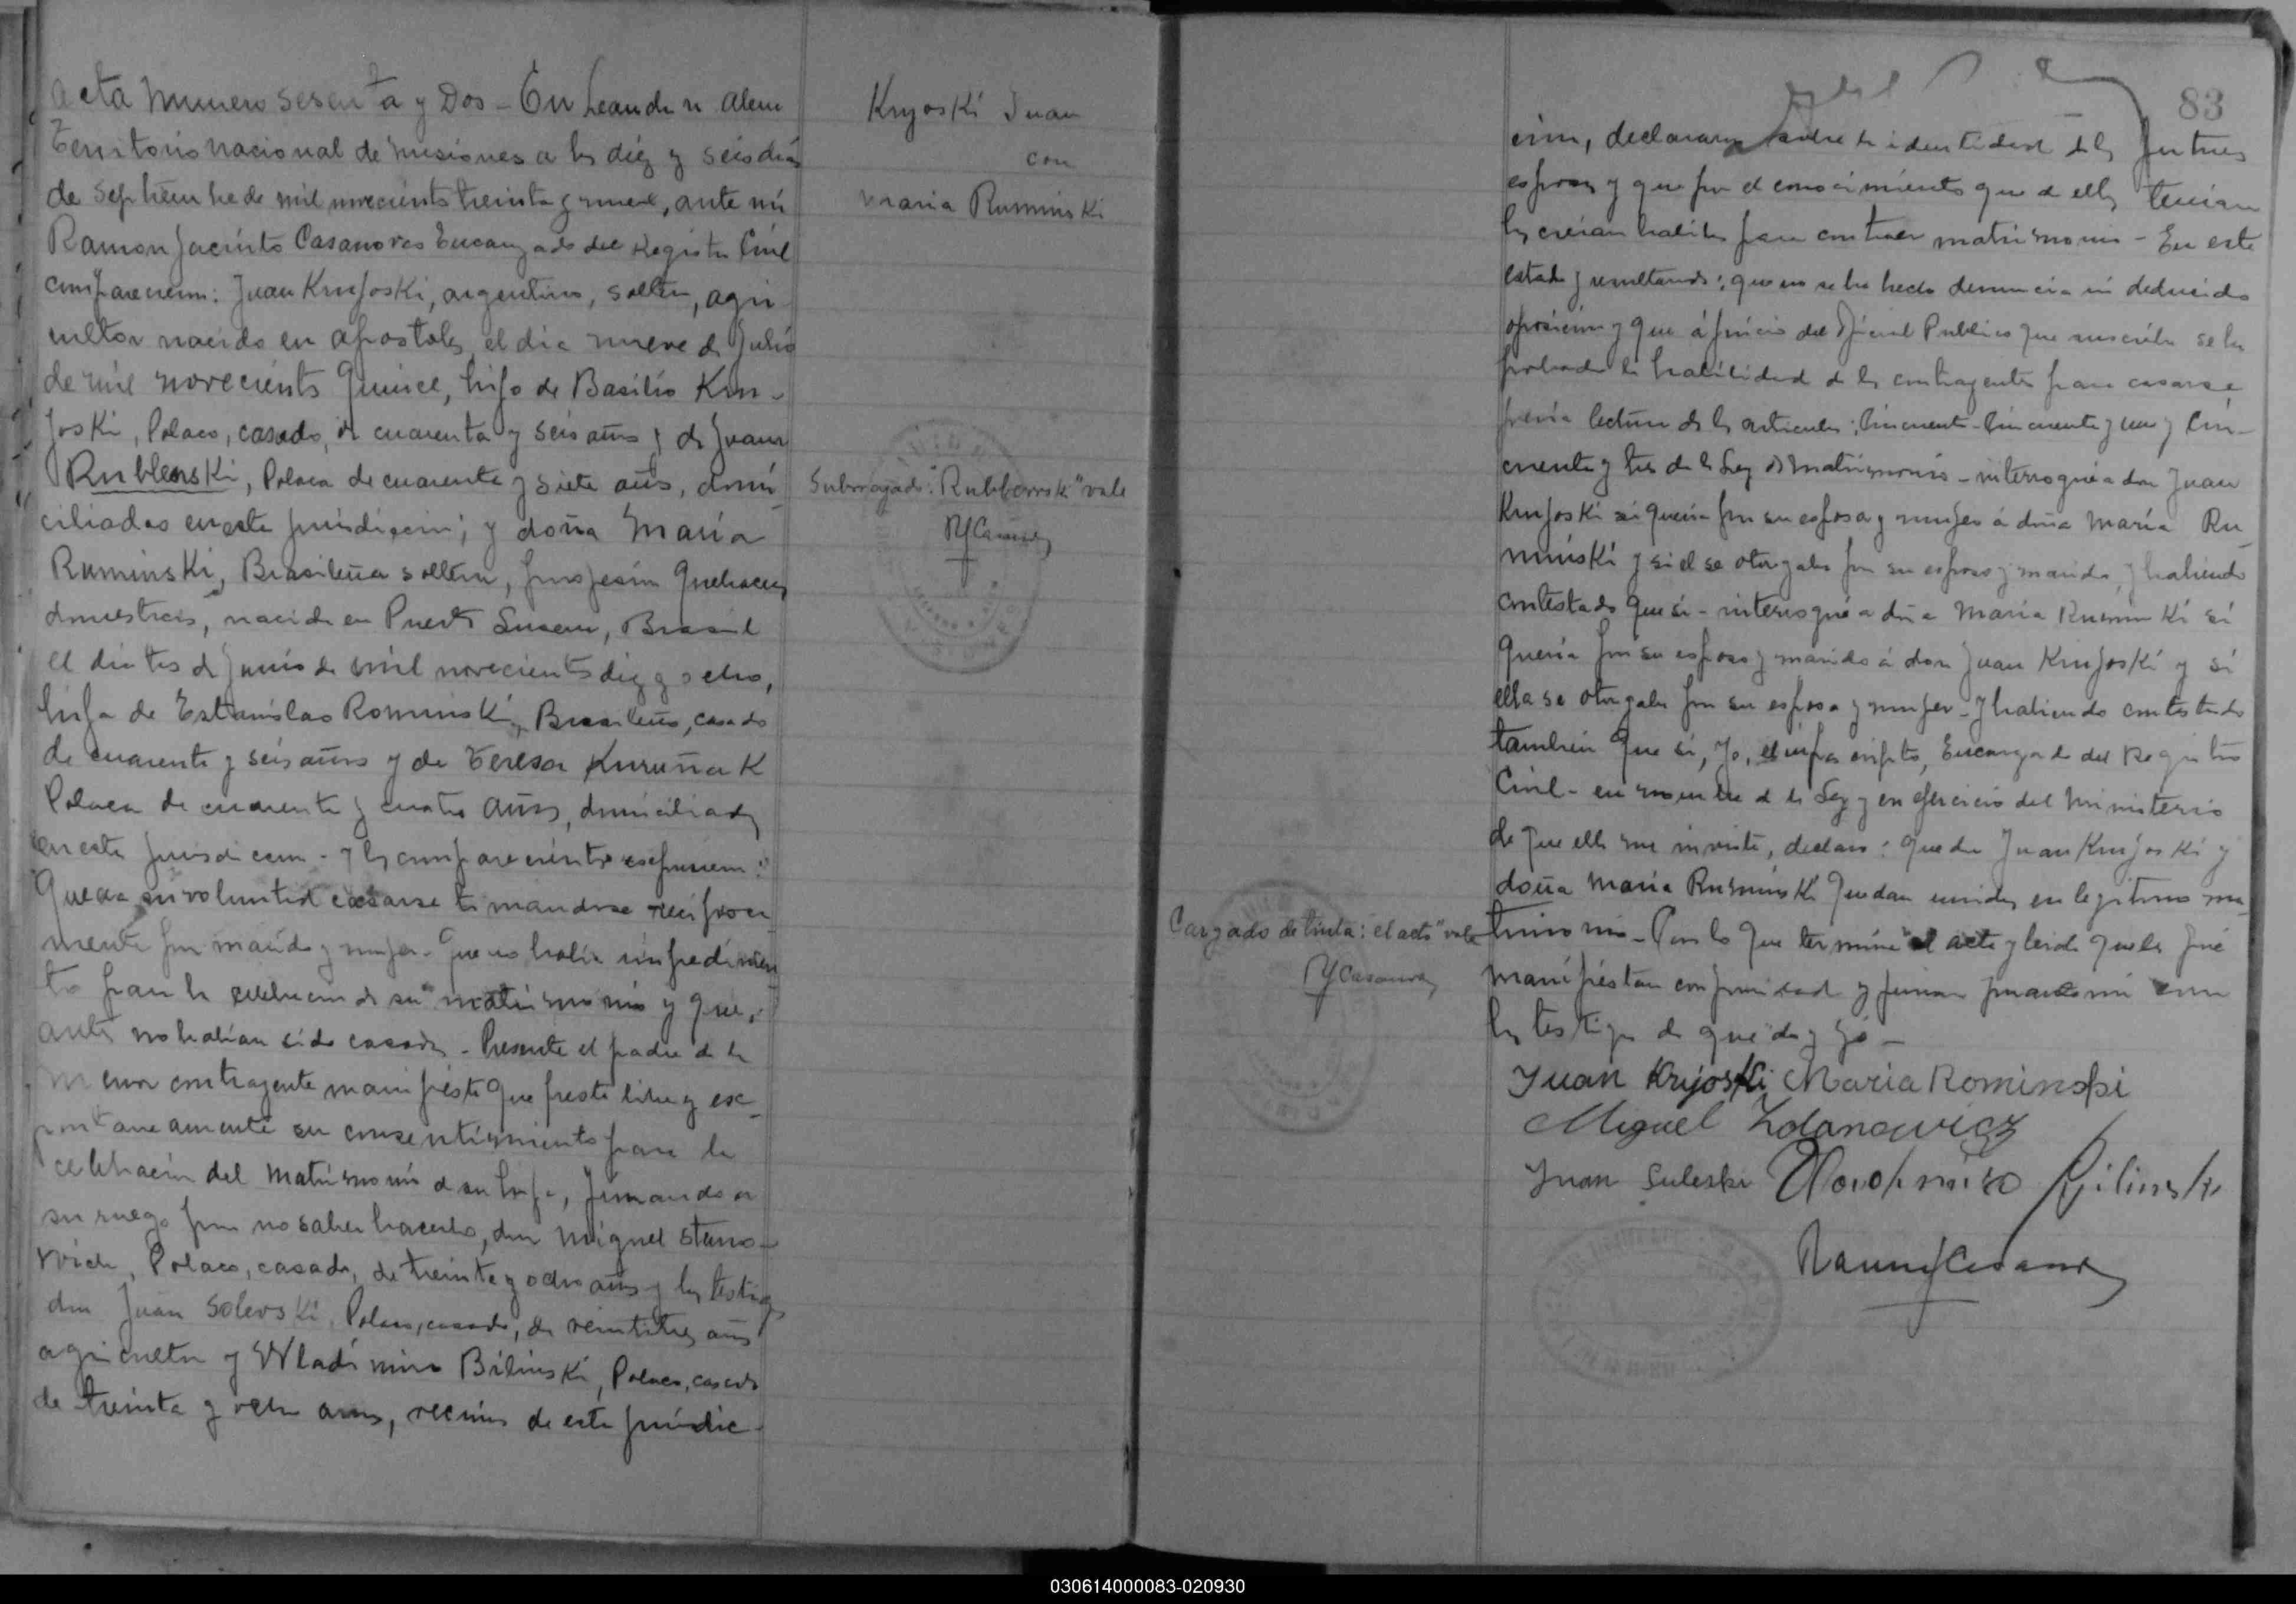 Acta Numero sesenta y Dos - En Leandro N Alem
Territorio nacional de Misiones a los diez y seis dias
de Septiembre de mil novecientos treinta y nueve, ante mi
Ramon Jacinto Casanovas Encargado del Registro Civil
comparecieron: Juan Krujoski, argentino, soltero, agri
cultor nacido en Apostoles, el dia nueve de Julio
de mil novecientos quince, hijo de Basilio Kru-
joski, Polaco, casado, de cuarenta y seis años y de Juana
Rublenski, Polaca de cuarenta y siete años, domi
ciliados en esta jurisdiccion; y doña Maria
Ruminski, Brasileña soltera, profesion quehaceres
domesticos, nacida en Puerto Brasil
el dia tres de Junio de mil novecientos diez y ocho,
hija de Estanislao Rominski, Brasileño, casado
de cuarenta y seis años y de Teresa Kuruñak
Polaca de cuarenta y cuatro años, domiciliados
en esta jurisdiccion - y los comparecientes expusieron:
Que era su voluntad casarse tomandose reciproca
mente por marido y mujer - que no habia impedimen
to para la celebracion de su matrimonio y que,
antes no habian sido casados - Presente el padre de la
menor contrayente manifiesta que presta libre y es-
pontaneamente su consentimiento para la
celebracion del matrimonio de su hija, firmando a
su ruego por no saber hacerlo, don Miguel Stano-
vich, Polaco, casado, de treinta y ocho años y los testigos
don Juan Solevski, Polaco, casado, de veintitres años
agricultor y Wladimiro Bilinski, Polaco, casado
de treinta y ocho años, vecinos de esta jurisdic-
Kryoski Juan
con
Maria Ruminski
Subrrayado: "Rubbenrski" vale
RJCasanovas
83
cion, declararon sobre la identidad de los futuros
esposos y que por el conocimiento que de ellos tenian
los creian habiles para contraer matrimonio - En este
estado y resultando: que no se ha hecho denuncia ni deducido
oposicion y que á juicio del Oficial Publico que suscribe se ha
probado la habilidad de los contrayentes para casarse,
previa lectura de los articulos: Cincuenta - Cincuenta y uno y Cin-
cuenta y tres de la Ley de Matrimonio - interrogué a don Juan
Krujoski si queria por su esposa y mujer á doña Maria Ru
minski y si el se otorgaba por su esposo y marido, y habiendo
contestado que si - interrogué a doña Maria Ruminski si
queria por su esposo y marido á don Juan Krujoski y si
ella se otorgaba por su esposa y mujer - y habiendo contestado
tambien que si, yo, el infrascripto, Encargado del Registro
Civil - en nombre de la Ley y en ejercicio del Ministerio
de que ella me inviste, declaro: que don Juan Krujoski y
doña Maria Ruminski quedan unidos en legitimo ma
trimonio - Con lo que terminó el acto y leida que les fué
manifiestan conformidad y firman por ante mi con
los testigos de que doy fé -
Cargado de tinta: "el acto" vale
RJCasanovas
Juan Kryjoski Maria Rominski
Miguel Zdanowicz
Juan Suleski Wlodimiro Bilinski
Ramon J Casanovas
030614000083-020930